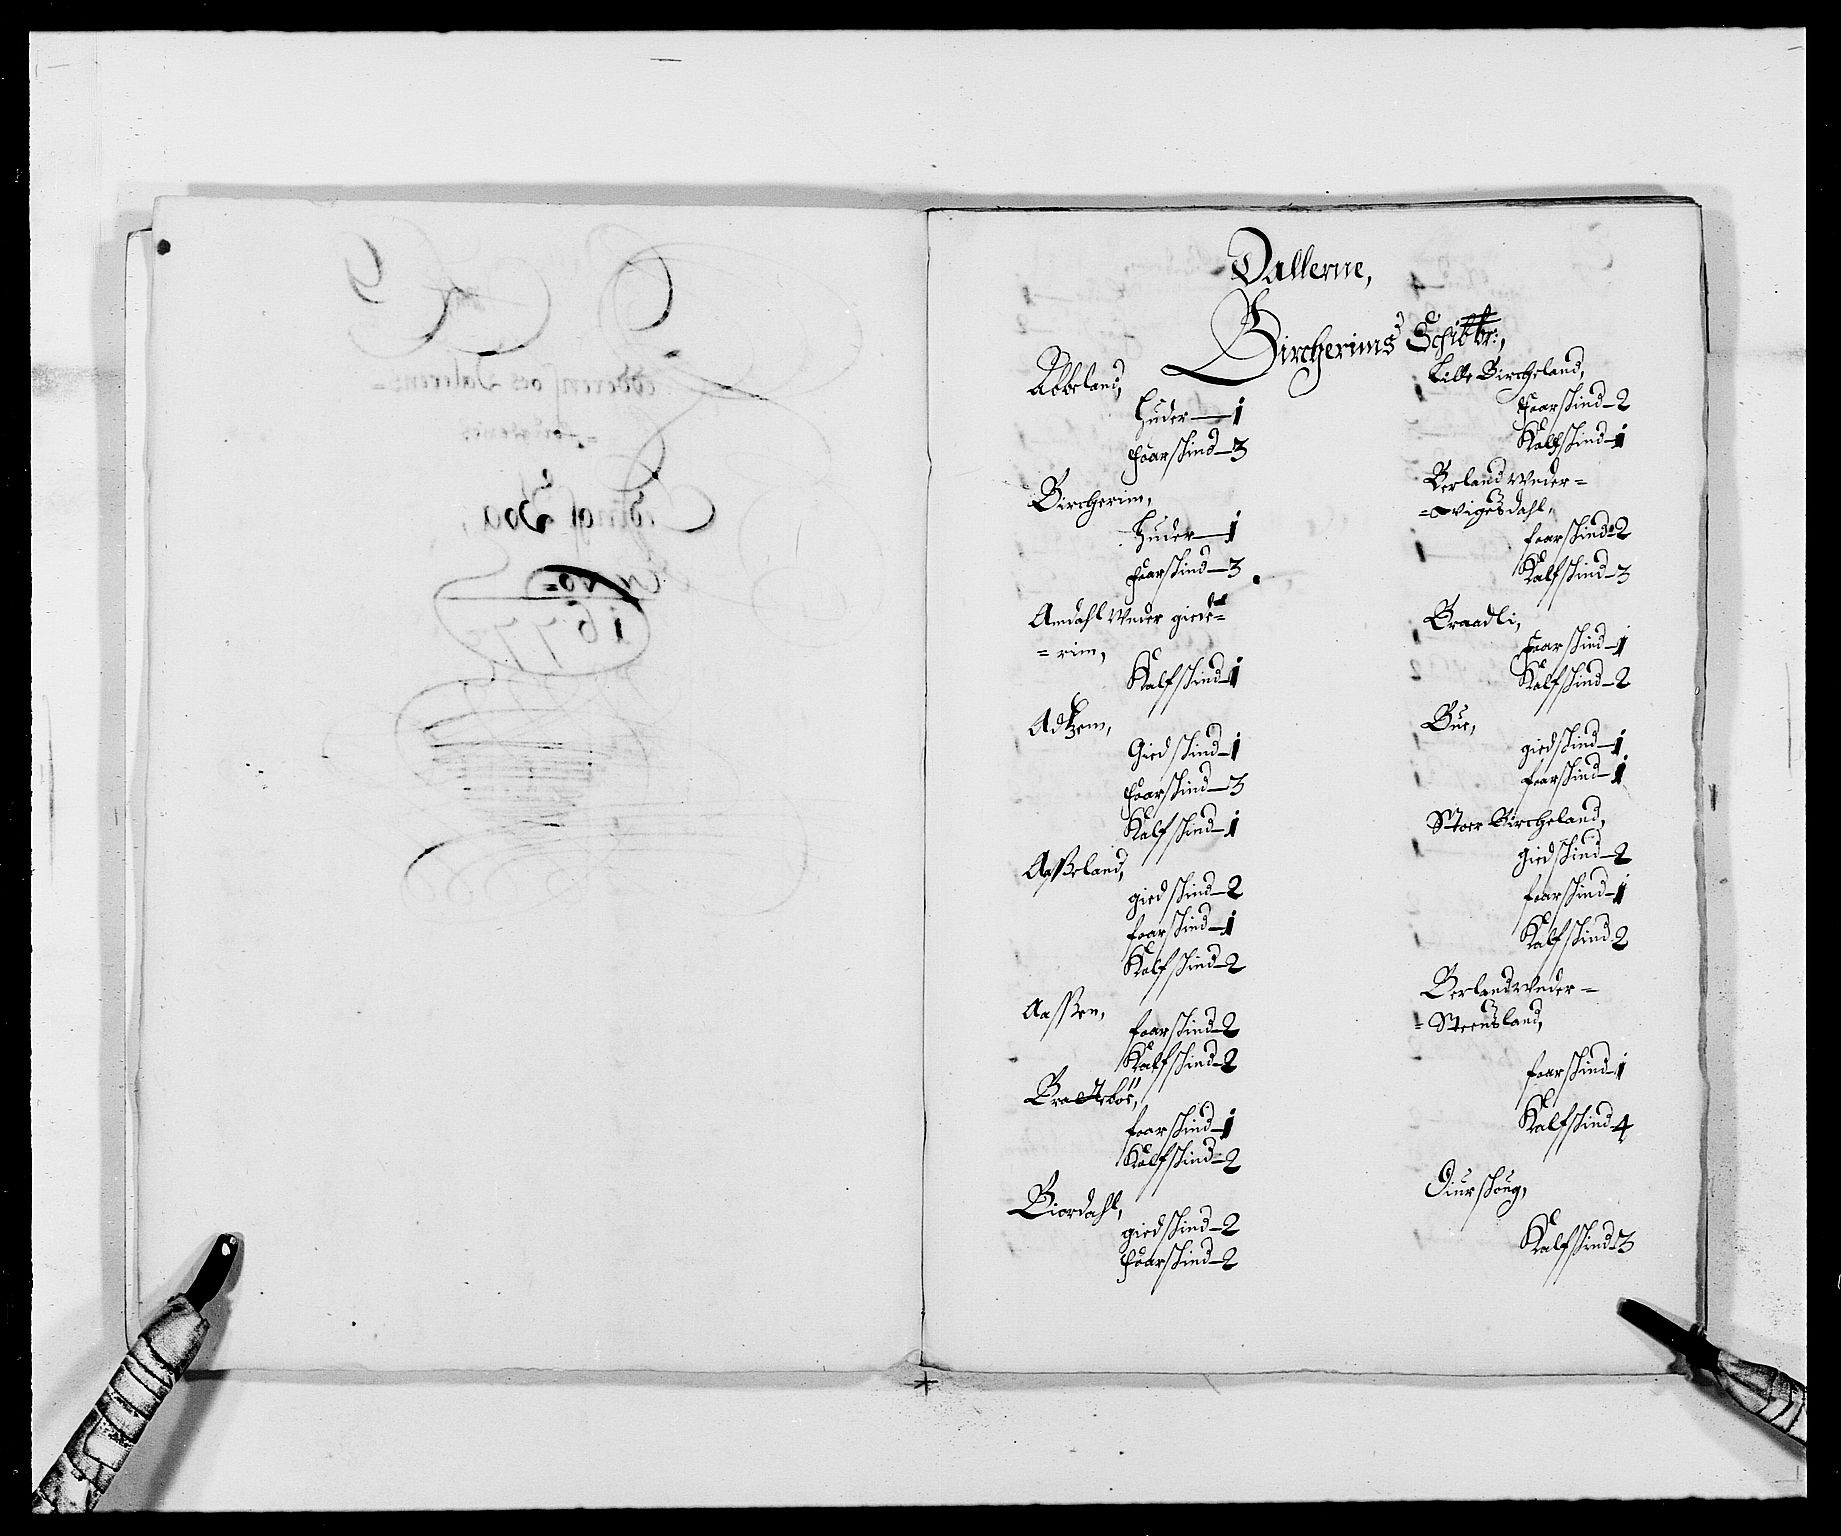 Dallerne,
Bircherims Schibbr:,
Abbeland,
Huder—1
Faarskind—3
Bircherim,
Huder—1
Faarskind—3
Amdahl Under giede=
=rim,
Kalfskind—1
Adtzem,
Giedskind—1
Faarskind—3
Kalfskind—1
Aasßeland,
giedskind—2
faarskind—1
Kalfskind—2
Aasßen,
faarskind—2
Kalfskind—2
Bratteböe,
faarskind—1
Kalfskind—2
Biordahl,
giedskind—2
Faarskind—2
Lille Bircheland,
Faarskind—2
Kalfskind—1
Berland Under=
=vigesdahl,
faarskind—2
Kalfskind—3
Braadli,
Faarskind—1
Kalfskind—2
Bue,
giedskind—1
faarskind—1
Stoer Bircheland,
giedskind—2
faarskind—1
Kalfskind 2
Berland Under=
=Steensland,
faarskind—1
Kalfskind 4
Diurskoug,
Kalfskind 3
1677